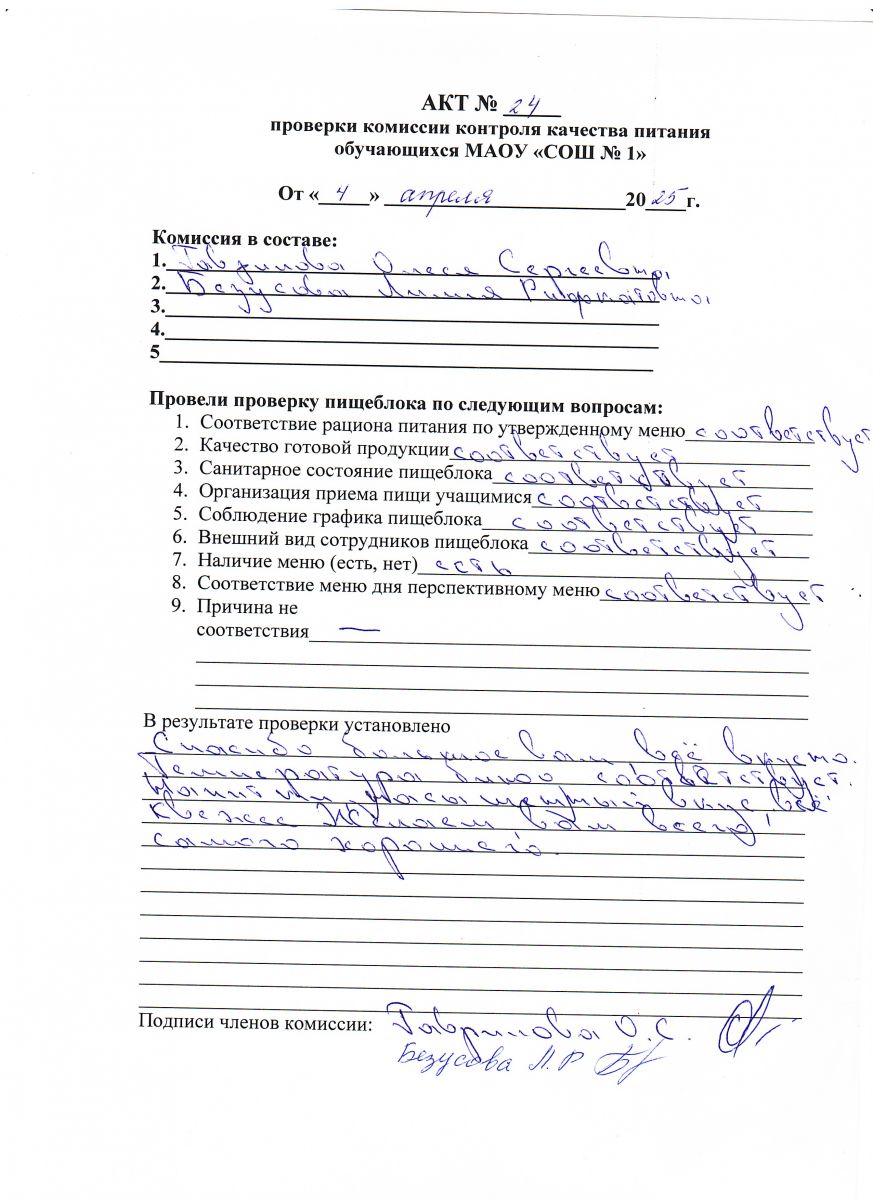 АКТ № 24
проверки комиссии контроля качества питания
обучающихся МАОУ «СОШ № 1»
От « 4 » апреля 2025 г.
Комиссия в составе:
1. Гаврилова Олеся Сергеевна
2. Безусова Лилия Рифкатовна
3.
4.
5
Провели проверку пищеблока по следующим вопросам:
1. Соответствие рациона питания по утвержденному меню соответствует
2. Качество готовой продукции соответствует
3. Санитарное состояние пищеблока соответствует
4. Организация приема пищи учащимися соответствует
5. Соблюдение графика пищеблока соответствует
6. Внешний вид сотрудников пищеблока соответствует
7. Наличие меню (есть, нет) есть
8. Соответствие меню дня перспективному меню соответствует
9. Причина не
соответствия —
В результате проверки установлено
Спасибо большое вам всё вкусно.
Температура блюд соответствует.
насыщенный вкус всё
свежее Желаем вам всего
самого хорошего.
Подписи членов комиссии: Гаврилова О.С.
Безусова Л.Р